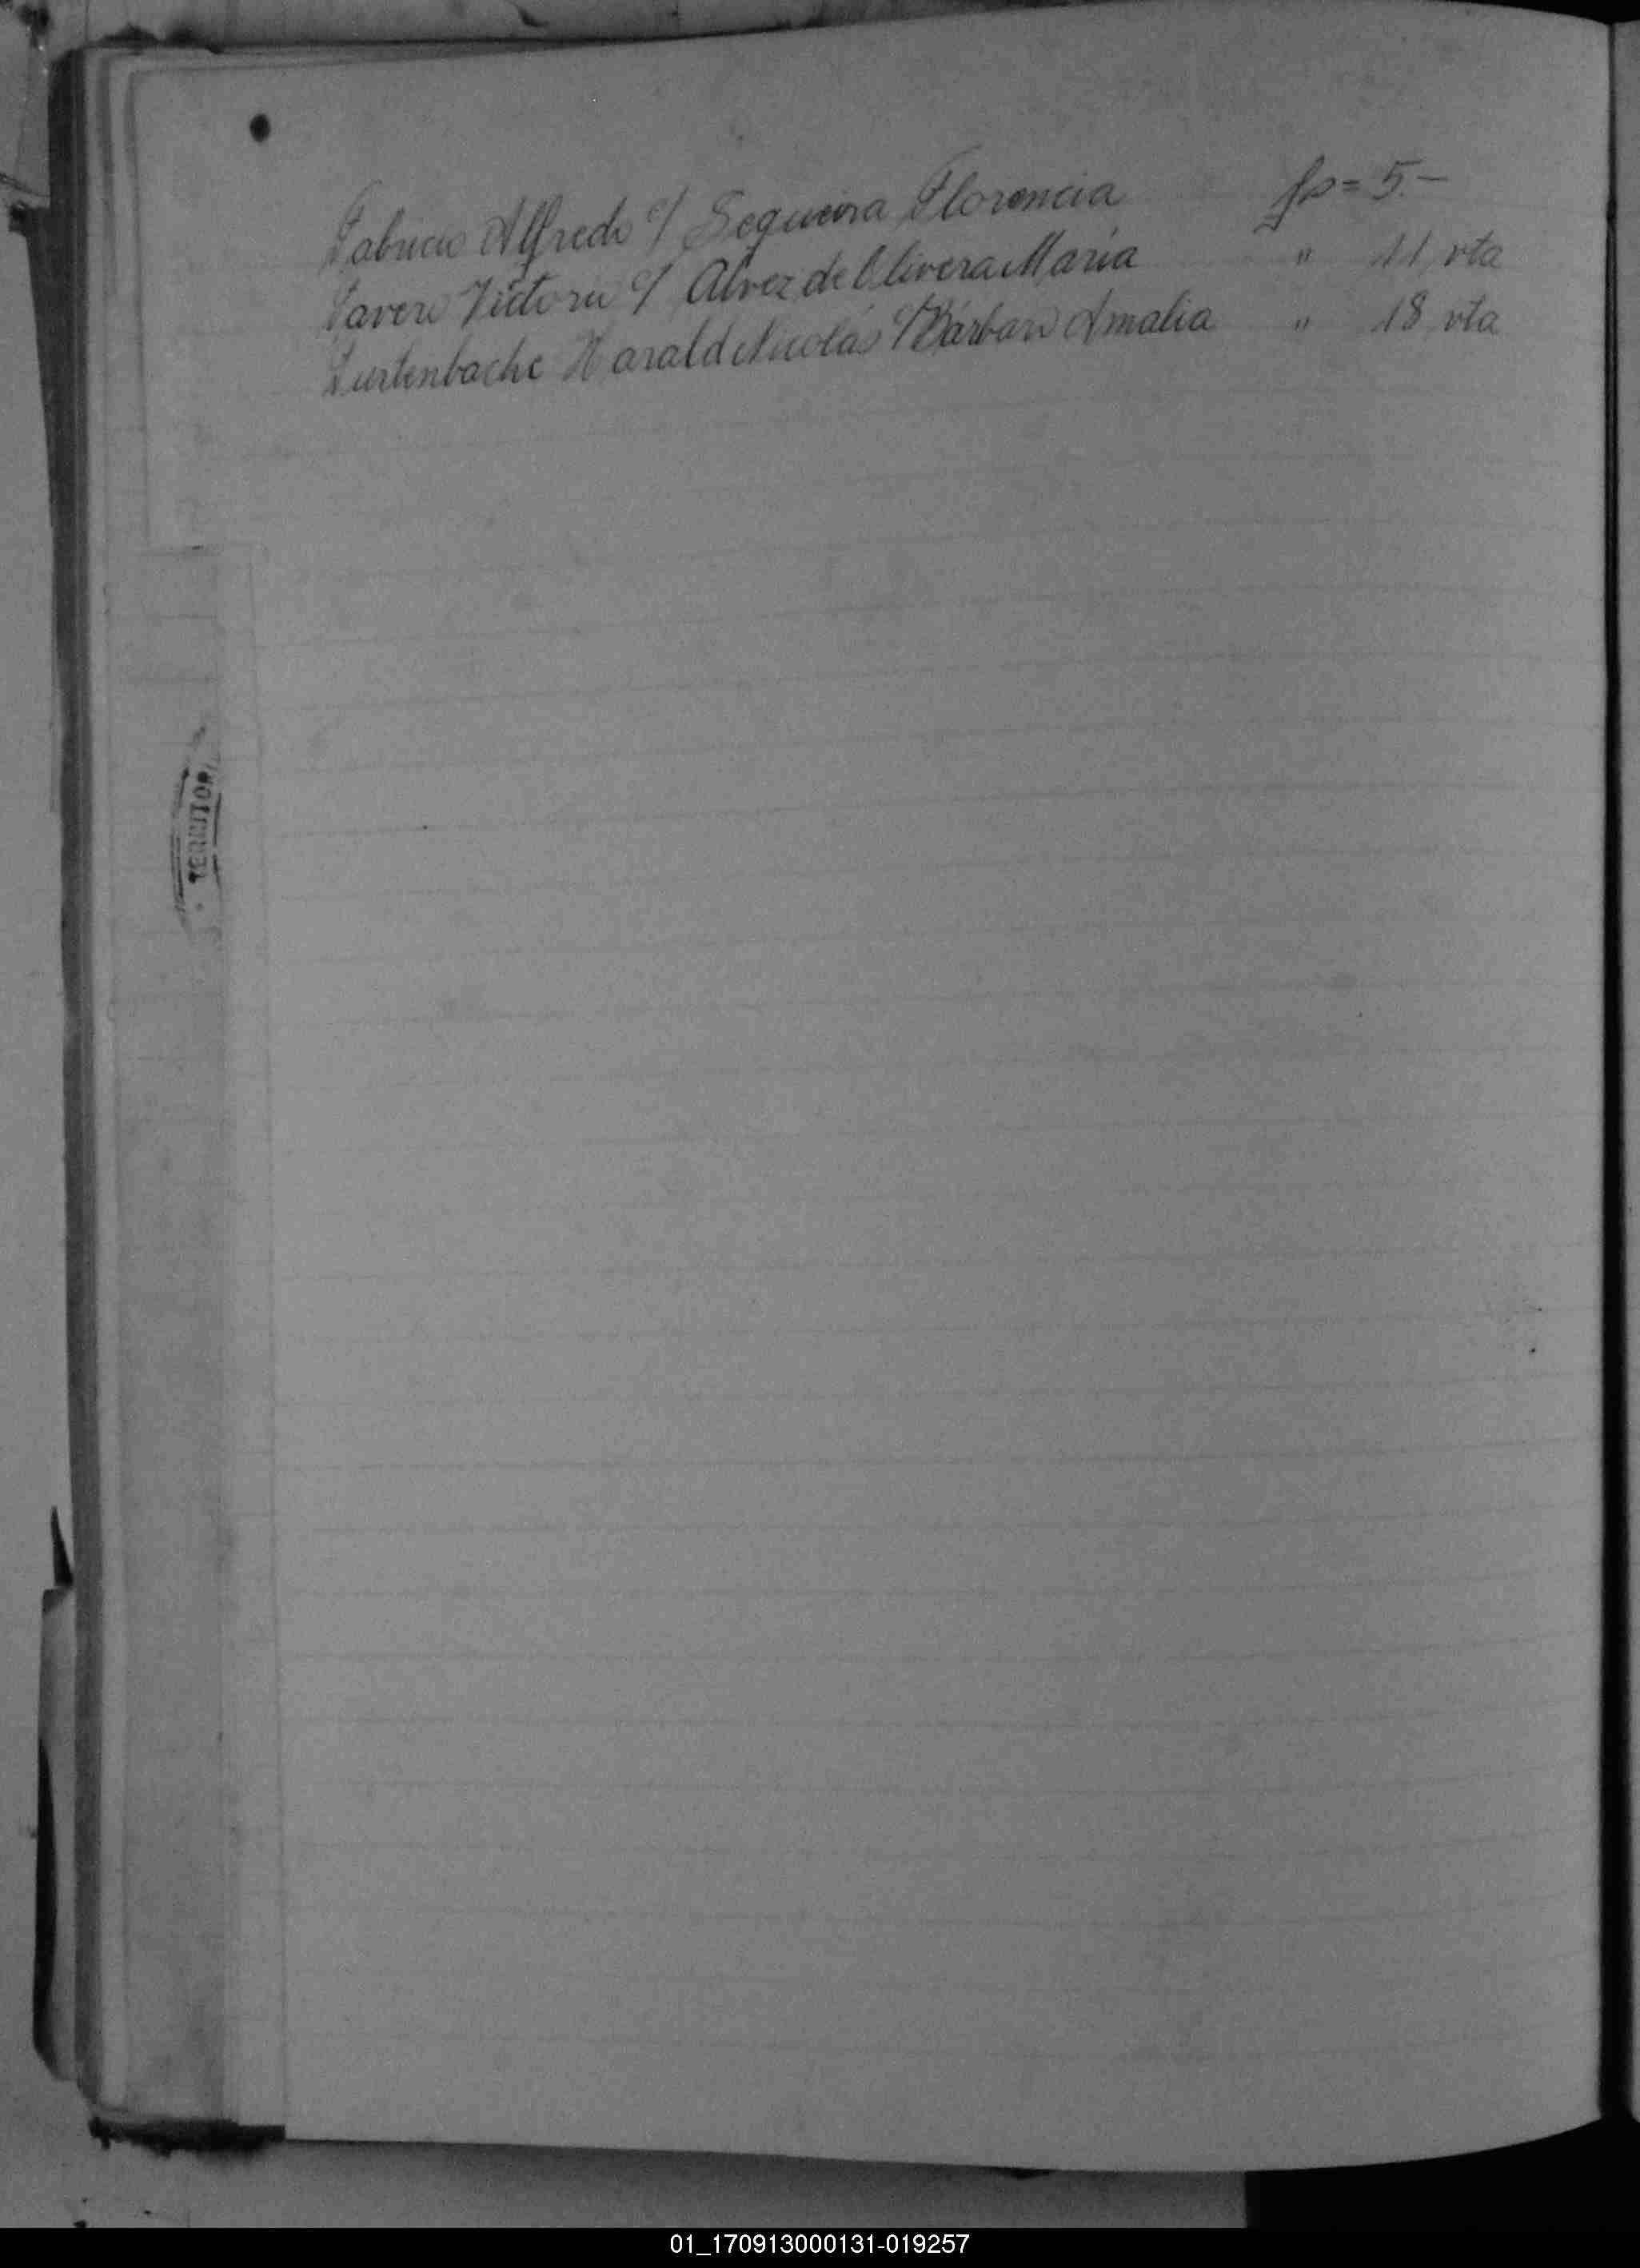 Fabricio Alfredo c/ Sequeira Florencia fs = 5.-
Favero Victorio c/ Alvez de Olivera Maria " 11 vta
Furtenbache Harald Nicolás c/ Bárbaro Amalia " 18 vta
TERRITOR
01_170913000131-019257